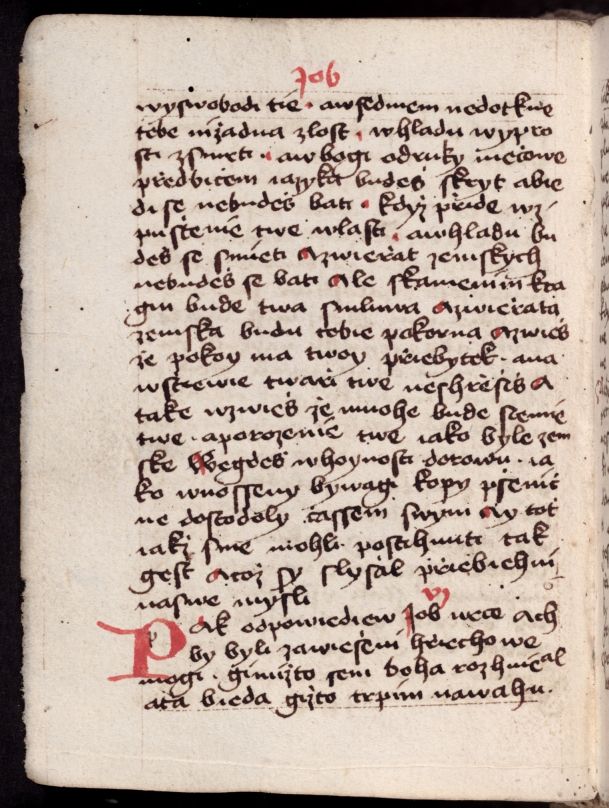 Job
wyswobodi tie · awsedmem nedotkne
tebe nižadna zlost · whladu wypro
sti zsmrti · awbogi odruky mečowe
předbičem iazyka budeš skryt abie
di se nebudeš bati · když přide wz
pustenie twe wlasti · awhladu bu
deš se smieti Azwierat zemskych
nebudeš se bati Ale skamenim kra
gin bude twa smluwa Azwierata
zemska budu tobie pokorna Azwieš
že pokoy ma twoy přiebytek · ana
wštiewie twaři twe neshřešiš A
take wzwieš že mnohe bude siemie
twe · aporozenie twe iako byle zem
ske Wegdeš whoynosti dorowu · ia
ko wnosseny bywagi kopy pšenič
ne dostodoly časem swym Ay tot
iakž sme mohli postihnuti tak
gest Atož sy slyšal přiebiehni
naswe mysli
VI
Pak odpowiediew Job wece Ach
by byli zawieseni hřiechowe
mogi · gimižto sem boha rozhniewal
ata bieda gižto trpim nawahu ·